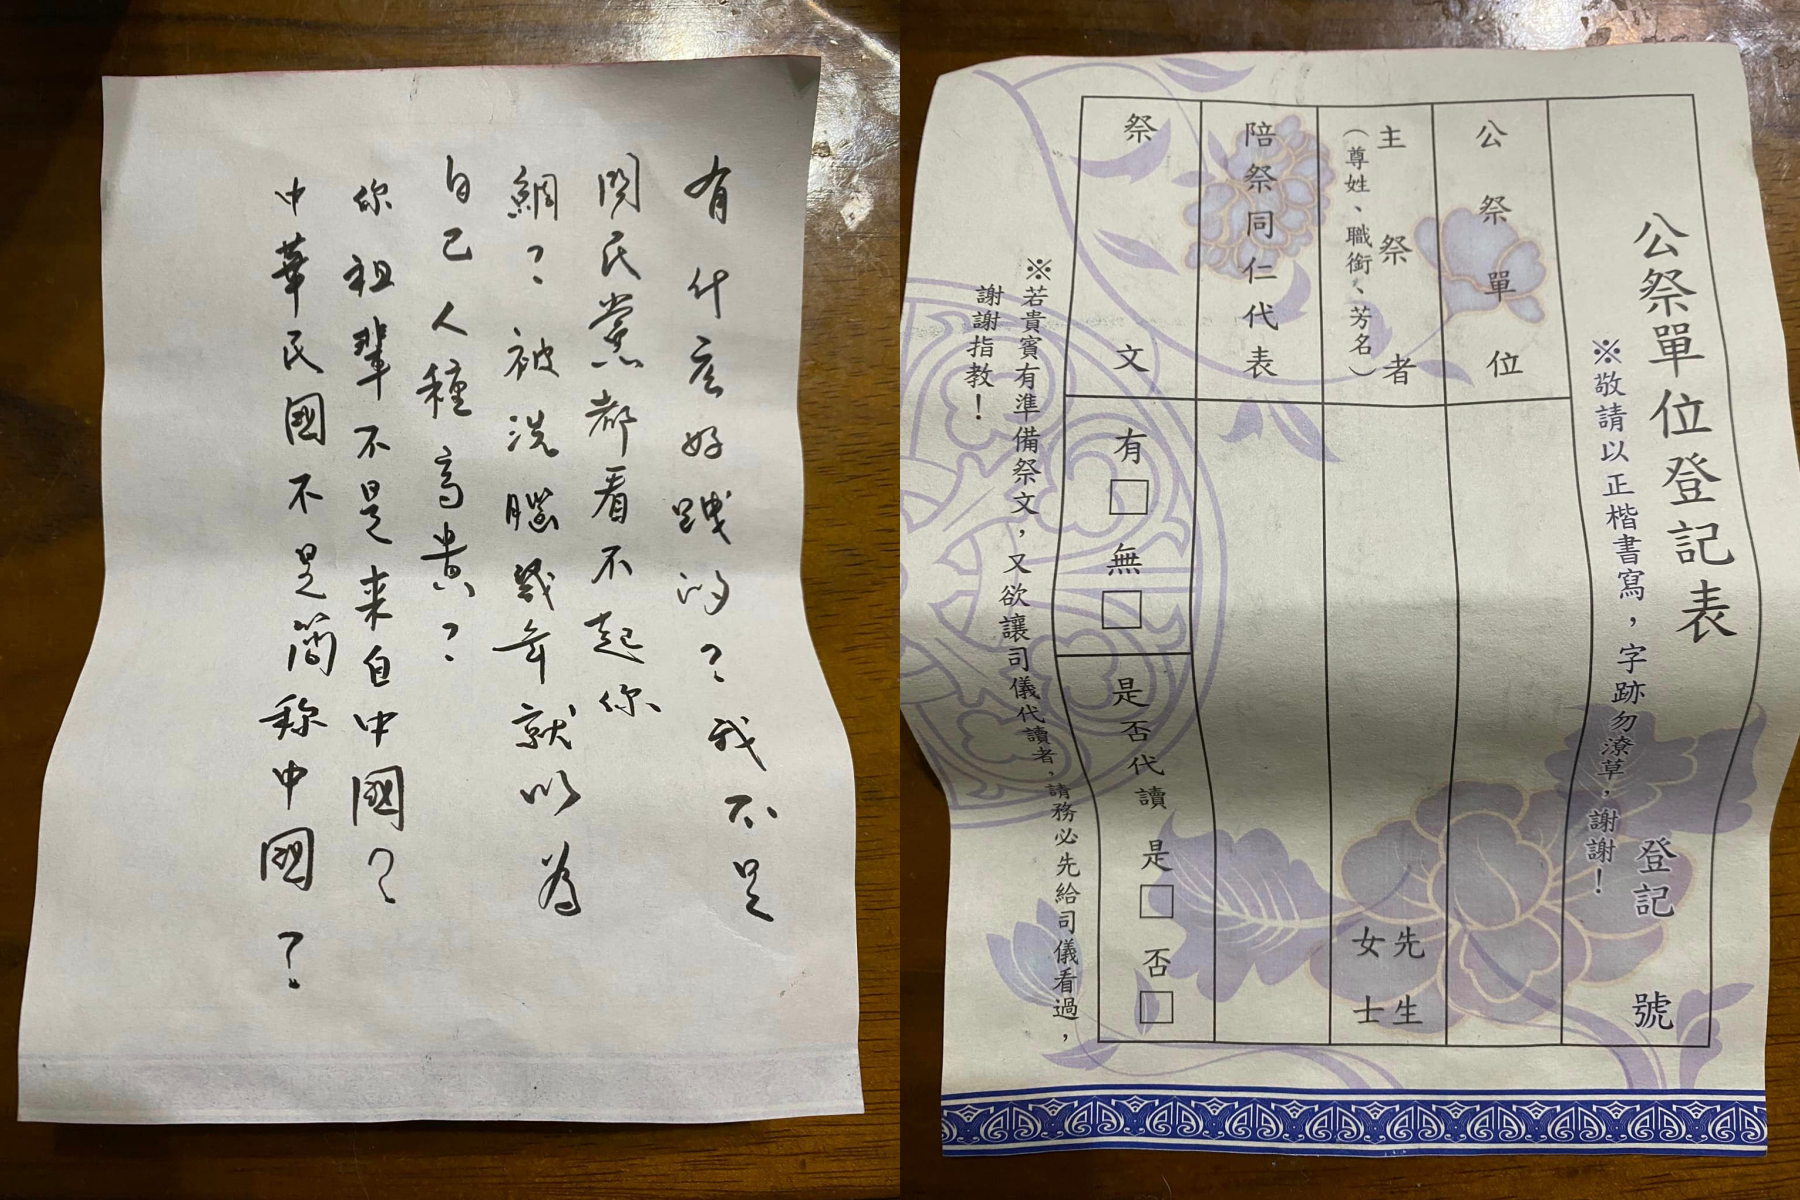 有什広好跩的？我不是
関民黨都看不起你
綢？被洗腦幾年就以為
自己人種高貴？
你祖輩不是来自中國？
中華民國不是简称中國？
公祭單位登記表
登記 號
※敬請以正楷書寫，字跡勿潦草，謝謝！
公祭單位
主祭者
（尊姓、職銜、芳名）
先生
女士
陪祭同仁代表
祭文
有□無□
是否代讀 是□ 否□
※若貴賓有準備祭文，又欲讓司儀代讀者、請務必先給司儀看過，
謝謝指教！